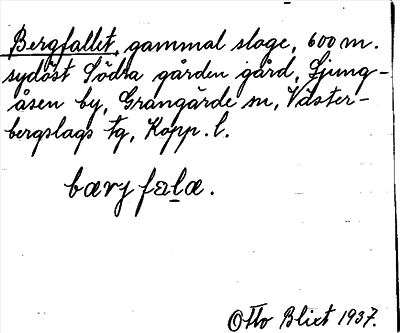 Bergfallet, gammal sloge, 600 m.
sydöst Södra gården gård, Ljung-
åsen by, Grangärde sn, Väster-
bergslags tg, Kopp. l.
bærj falæ.
Otto Blixt 1937.